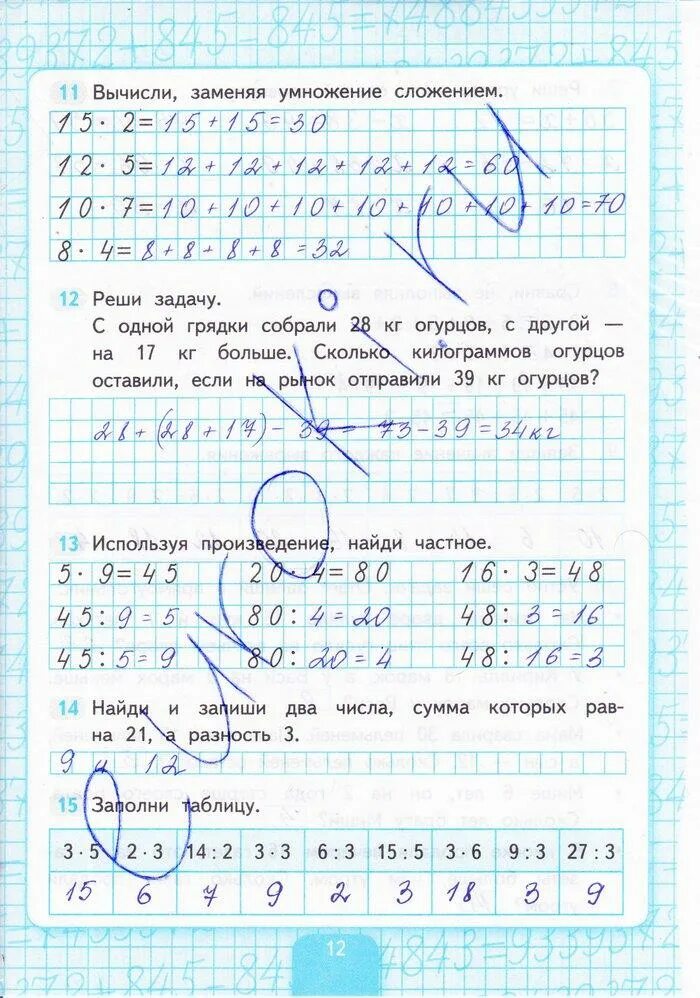 11 Вычисли, заменяя умножение сложением.
15 · 2 = 15 + 15 = 30
12 · 5 = 12 + 12 + 12 + 12 + 12 = 60
10 · 7 = 10 + 10 + 10 + 10 + 10 + 10 + 10 = 70
8 · 4 = 8 + 8 + 8 + 8 = 32
12 Реши задачу.
С одной грядки собрали 28 кг огурцов, с другой —
на 17 кг больше. Сколько килограммов огурцов
оставили, если на рынок отправили 39 кг огурцов?
28 + (28 + 17) - 39 = 73 - 39 = 34 кг
13 Используя произведение, найди частное.
5 · 9 = 45 20 · 4 = 80 16 · 3 = 48
45 : 9 = 5 80 : 4 = 20 48 : 3 = 16
45 : 5 = 9 80 : 20 = 4 48 : 16 = 3
14 Найди и запиши два числа, сумма которых рав-
на 21, а разность 3.
9 и 12
15 Заполни таблицу.
3 · 5 2 · 3 14 : 2 3 · 3 6 : 3 15 : 5 3 · 6 9 : 3 27 : 3
15 6 7 9 2 3 18 3 9
12